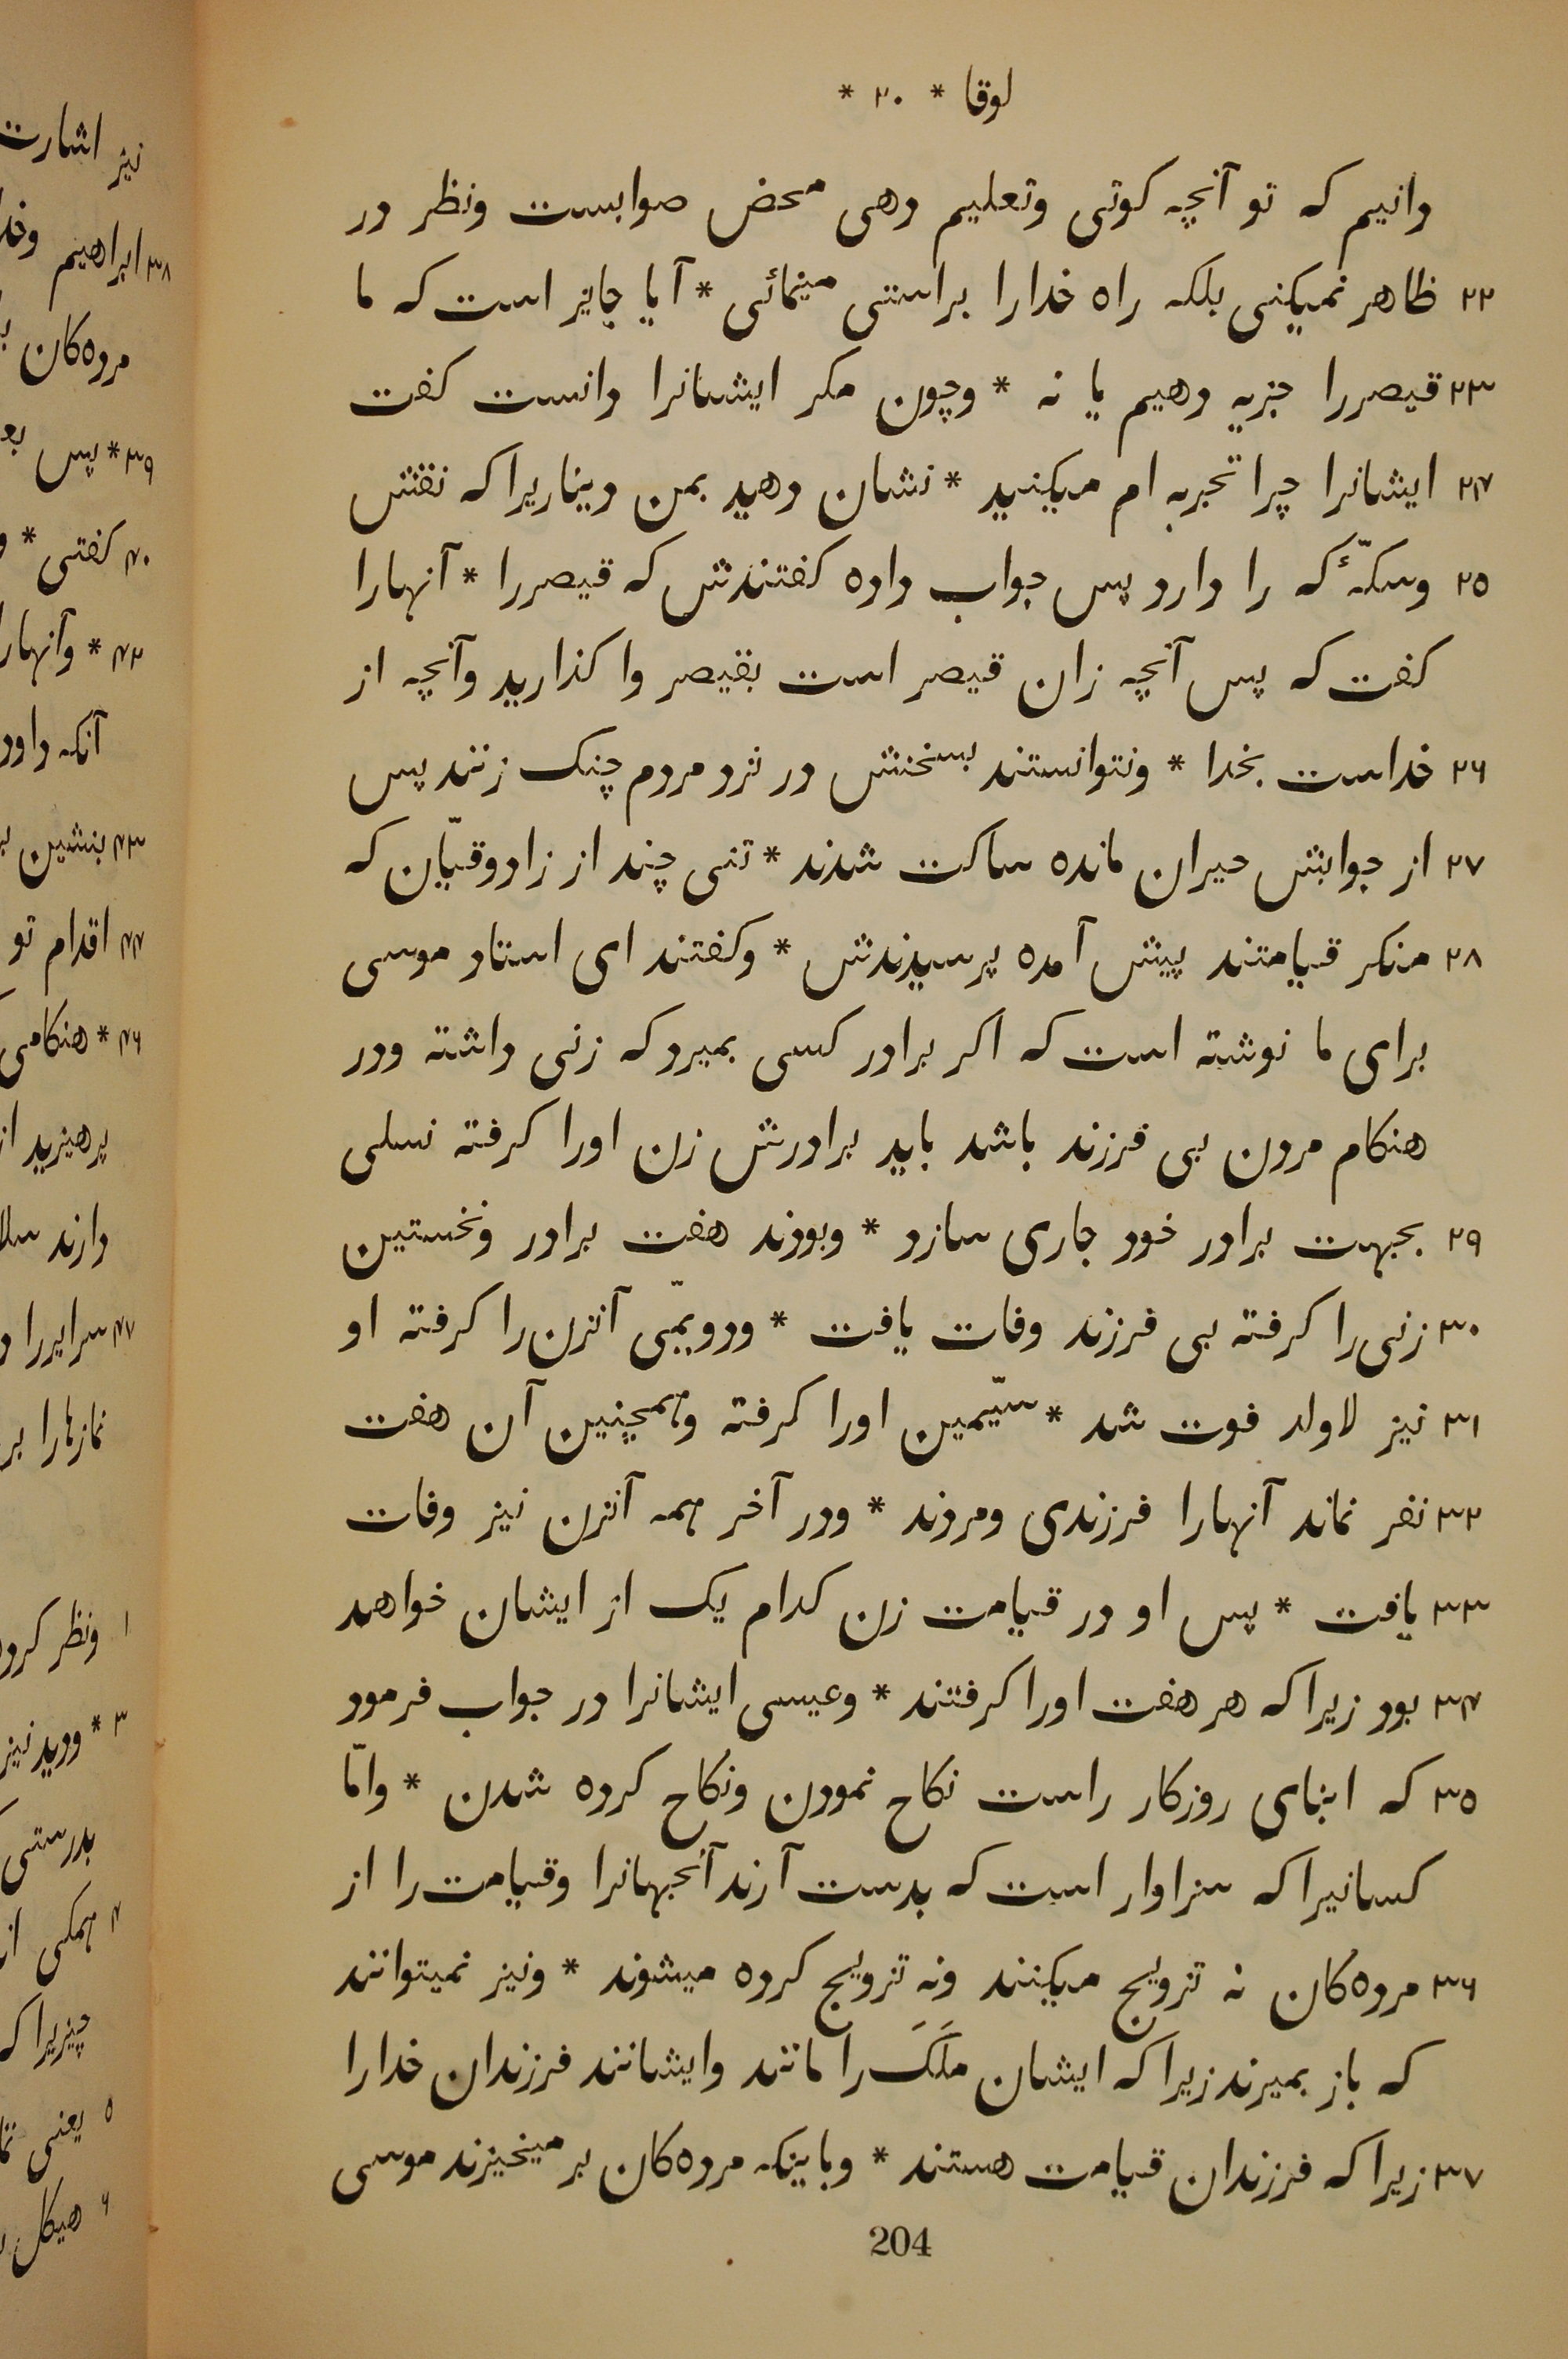 لوقا * ۲۰ *
دانیم که تو آنچه کوئی وتعلیم دهی محض صوابست ونظر در
۲۲ ظاهر نمیکنی بلکه راه خدارا براستی مینمائی * آیا جایز است که ما
۲۳ قیصررا جزیه دهیم یا نه * وچون مکر ایشانرا دانست کفت
۲۴ ایشانرا چرا تجربه ام میکنید * نشان دهید بمن دیناریرا که نقش
۲۵ وسکّهٔ که را دارد پس جواب داده کفتندش که قیصررا * آنهارا
کفت که پس آنچه زان قیصر است بقیصر وا کذارید وآنچه از
۲۶ خداست بخدا * ونتوانستند بسخنش در نزد مردم چنک زنند پس
۲۷ از جوابش حیران مانده ساکت شدند * تنی چند از زادوقیّان که
۲۸ منکر قیامتند پیش آمده پرسیدندش * وکفتند ای استاد موسی
برای ما نوشته است که اکر برادر کسی بمیرد که زنی داشته ودر
هنکام مردن بی فرزند باشد باید برادرش زن اورا کرفته نسلی
۲۹ بجهت برادر خود جاری سازد * وبودند هفت برادر ونخستین
۳۰ زنی را کرفته بی فرزند وفات یافت * ودویمّی آنزن را کرفته او
۳۱ نیز لاولد فوت شد * سیّمین اورا کرفته وهمچنین آن هفت
۳۲ نفر نماند آنهارا فرزندی ومردند * ودر آخر همه آنزن نیز وفات
۳۳ یافت * پس او در قیامت زن کدام یک از ایشان خواهد
۳۴ بود زیرا که هر هفت اورا کرفتند * وعیسی ایشانرا در جواب فرمود
۳۵ که ابنای روزکار راست نکاح نمودن ونکاح کرده شدن * وامّا
کسانیرا که سزاوار است که بدست آرند آنجهانرا وقیامت را از
۳۶ مرده‌کان نه تزویج میکنند ونه تزویج کرده میشوند * ونیز نمیتوانند
که باز بمیرند زیرا که ایشان ملَکَ را مانند وایشانند فرزندان خدارا
۳۷ زیرا که فرزندان قیامت هستند * وباینکه مرده‌کان بر میخیزند موسی
204
نیز اشارت
۳۸ ابراهیم
مرده‌کان
۳۹ * پس
۴۰ کفتی *
۴۲ * وآنهارا
آنکه داود
۴۳ بنشین
۴۴ اقدام تو
۴۶ * هنکامی
پرهیزید
دارند
۴۷ سرایررا
نمازهارا
۱ ونظر
۳ * ودید نیز
بدرستی
۴ همکی
چیزیرا
۵ یعنی
۶ هیکل